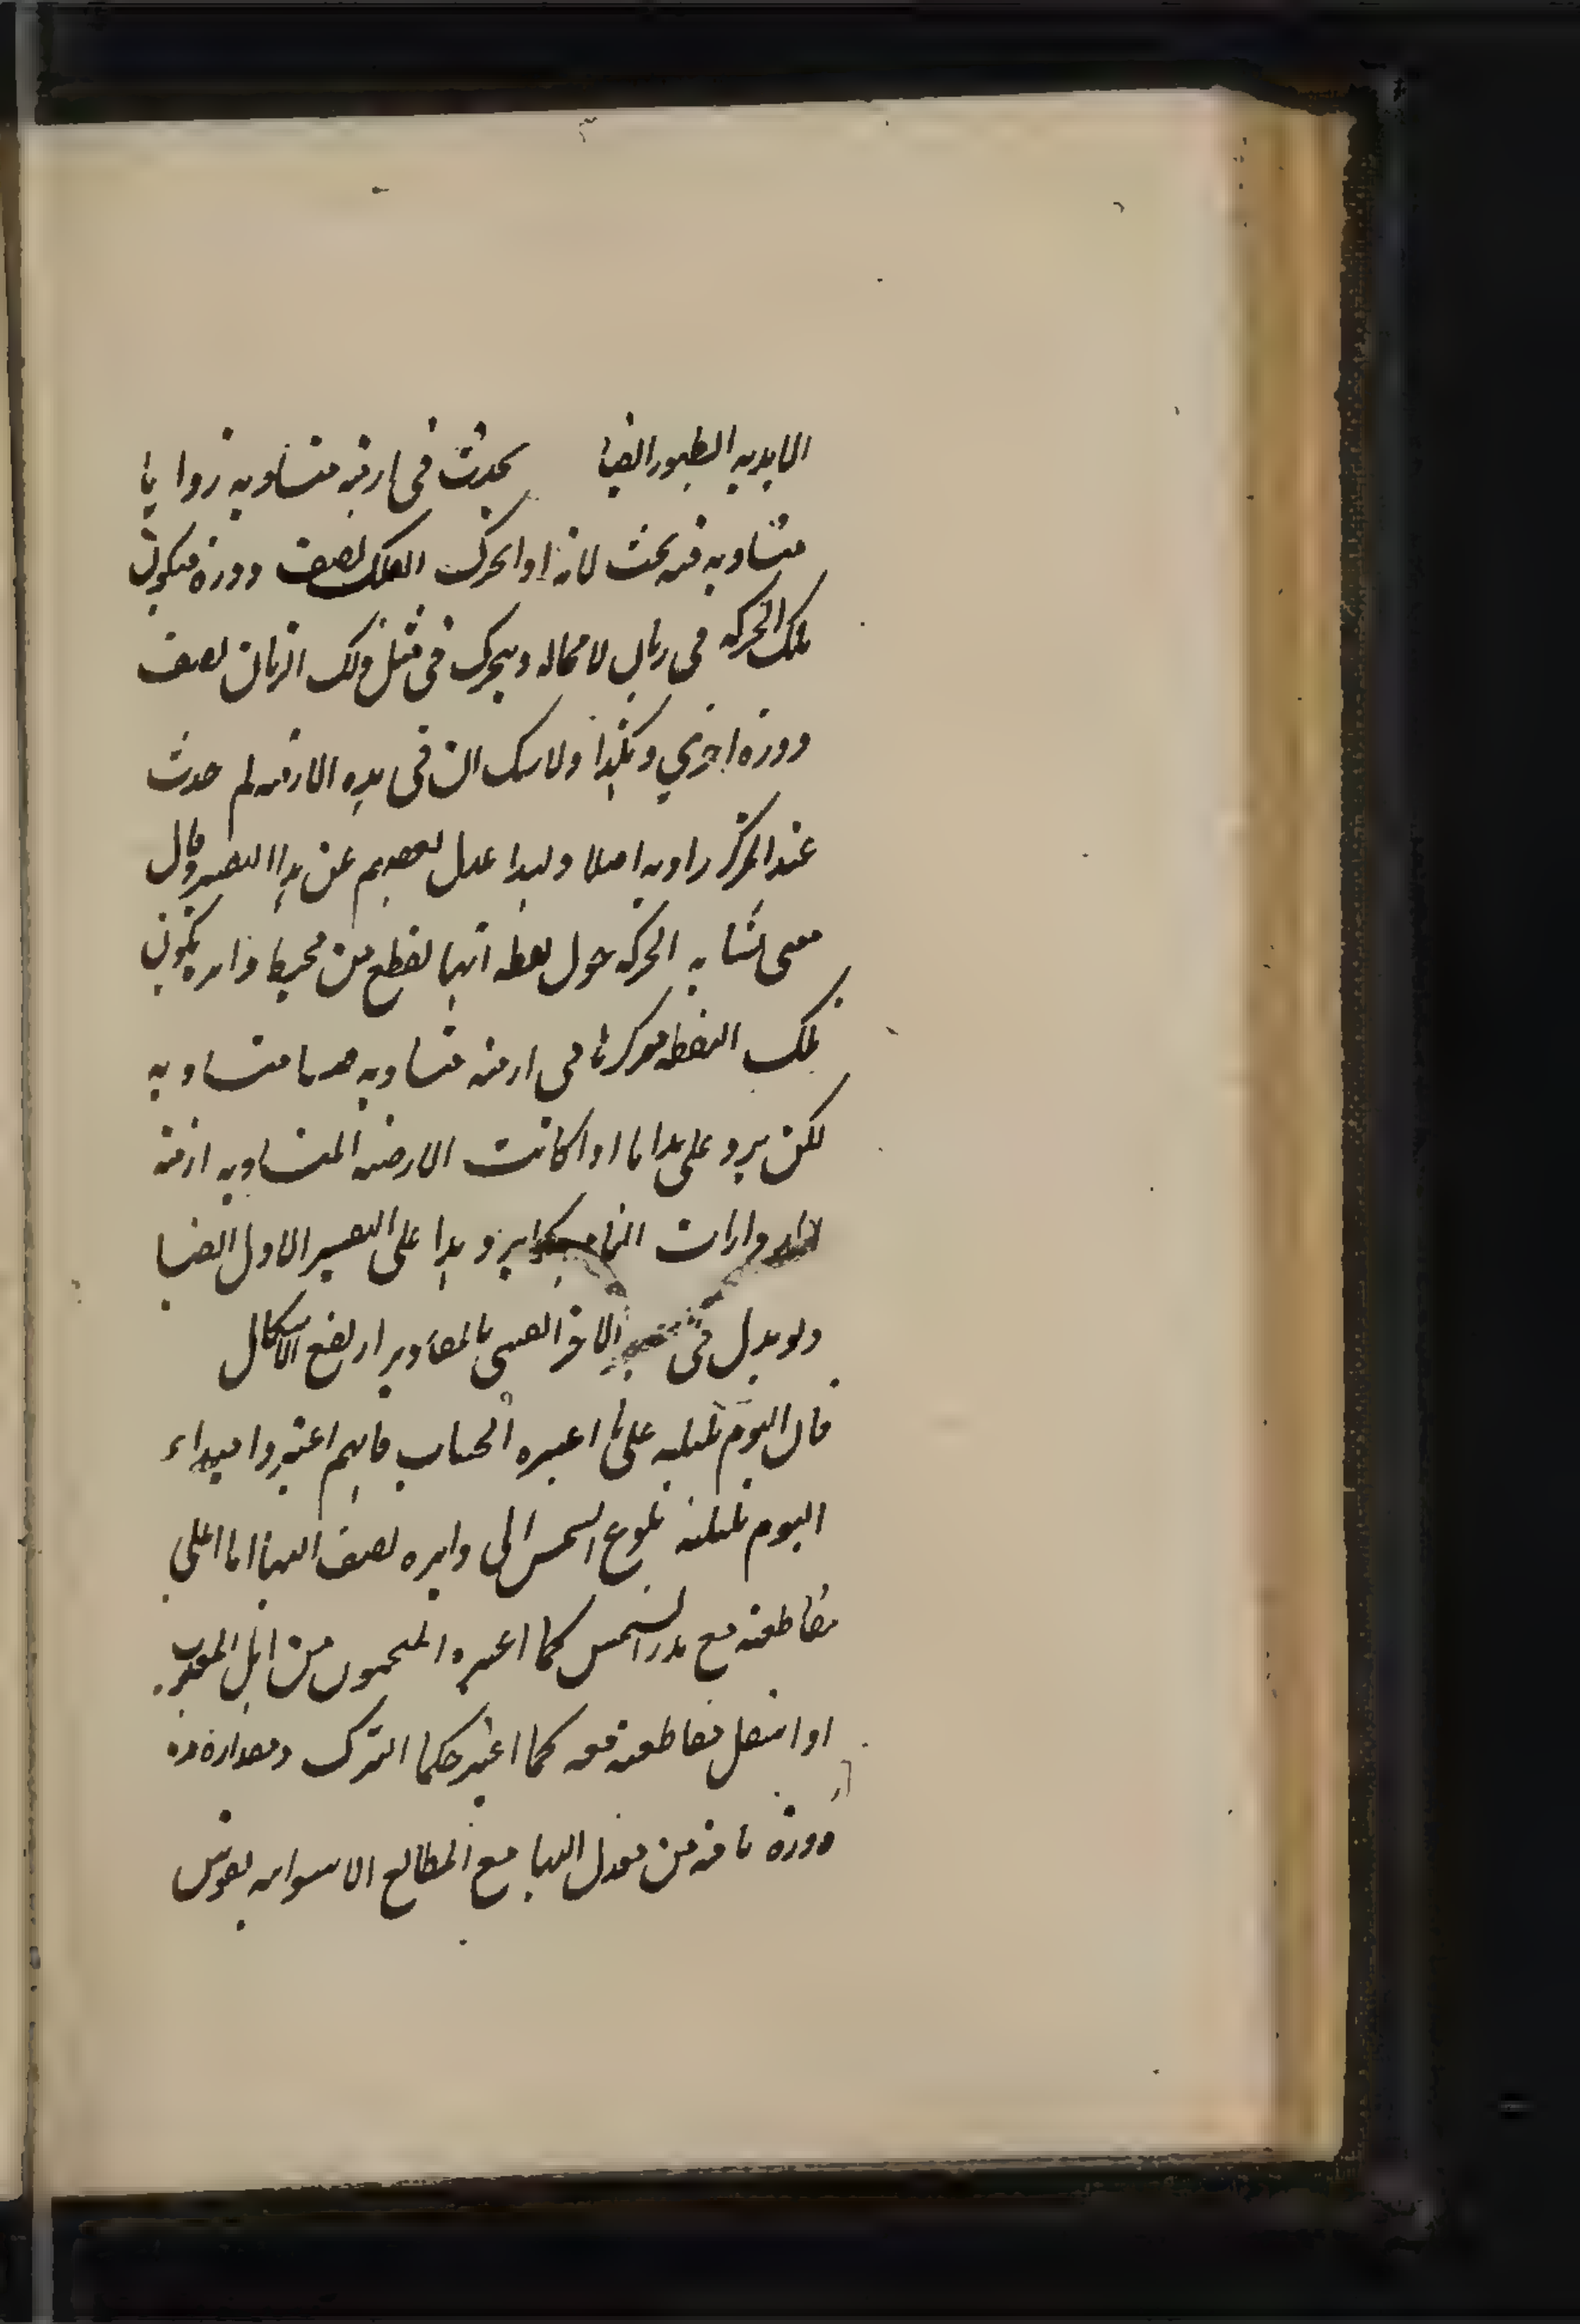 الابديه الظهور ايضا يحدث في ازمنه متساويه زوايا
متساويه فيه بحث لانه اذا تحرك الفلك نصف دورة فيكون
تلك الحركه في زمان لا محاله ويتحرك في مثل ذلك الزمان نصف
دورة اخري وهكذا ولا شك ان في هذه الازمنه لم حدث
عند المركز زاويه اصلا ولهذا عدل بعضهم عن هذا التفسير وقال
معنى تشابه الحركه حول نقطه انها تقطع من محيط دايره يكون
تلك النقطه مركزها في ازمنه متساويه قسيا متساويه
لكن يرد على هذا ما اذا كانت الازمنه المتساويه ازمنه
الدورات التامه يرد هذا على التفسير الاول ايضا
ولو بدل في الاخر القسي بالمقادير ارتفع الاشكال
قال اليوم بليلته على ما اعتبره الحساب فانهم اعتبروا مبداء
اليوم بليلته بلوغ الشمس الى دايره نصف النهار اما اعلى
تقاطعيه مع مدار الشمس كما اعتبره المنجمون من اهل المغرب
او اسفل تقاطعيه معه كما اعتبر حكما الترك ومقداره مده
دورة تامه من معدل النهار مع المطالع الاستوايه لقوس